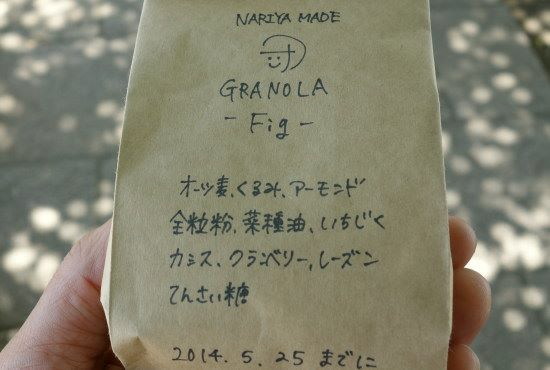 NARIYA MADE
GRANOLA
- Fig -
オーツ麦、くるみ、アーモンド
全粒粉、菜種油、いちじく
カシス、クランベリー、レーズン
てんさい糖
2014. 5. 25 までに